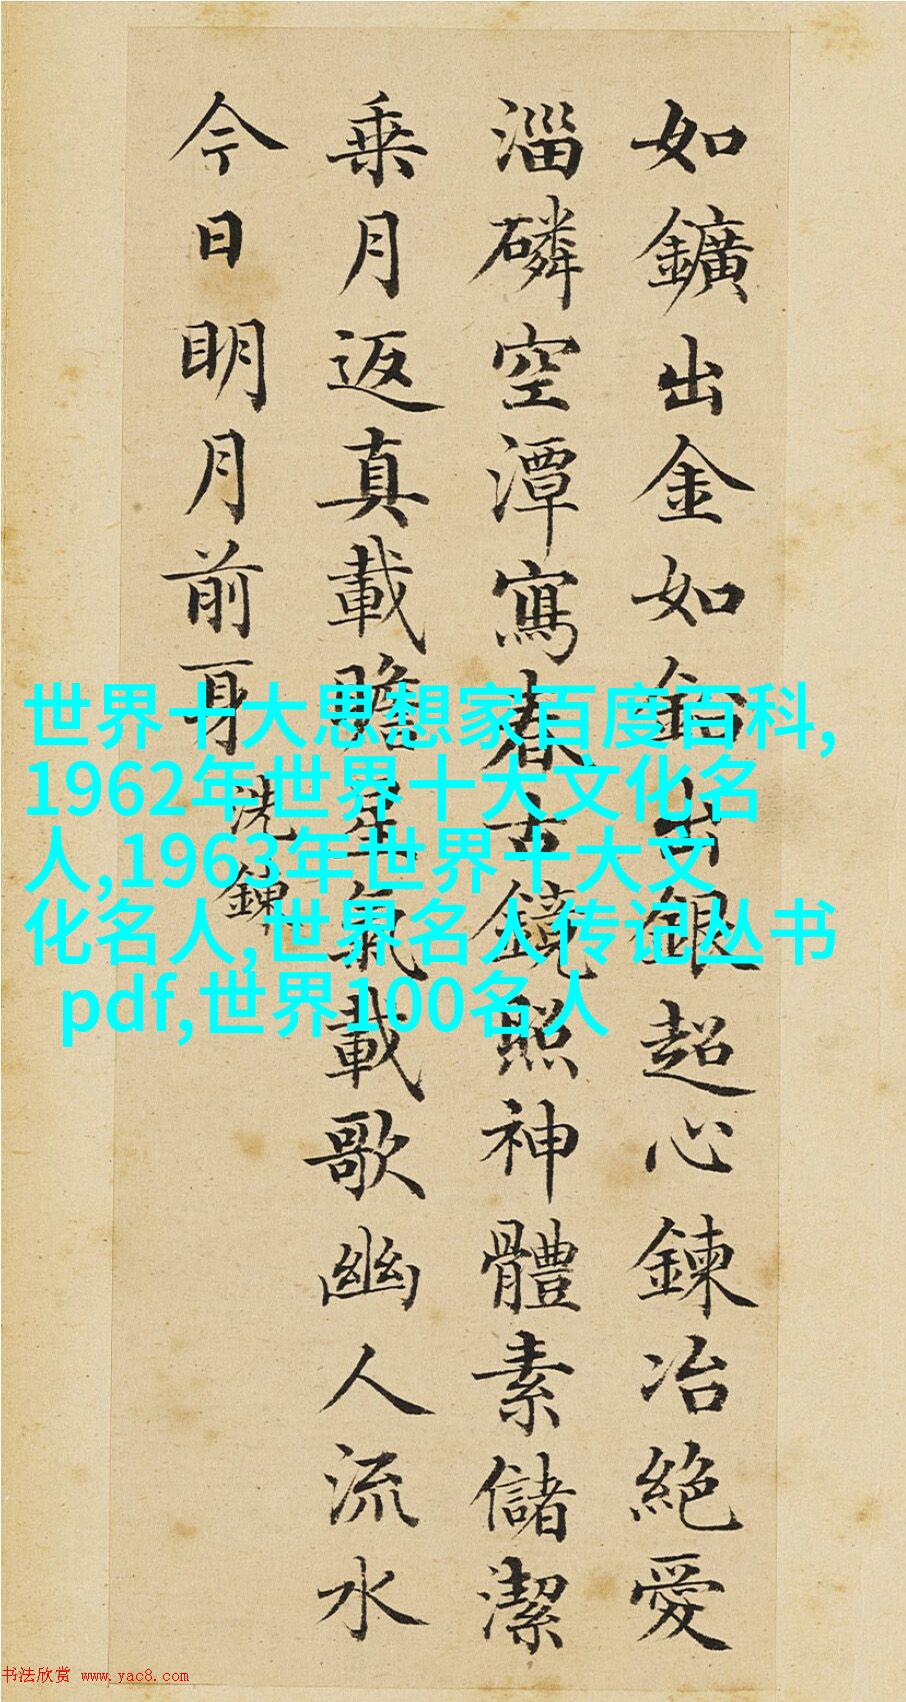 如鑛出金如鉛出銀超心鍊冶絕愛
淄磷空潭寫春古鏡照神體素儲潔
乘月返真載瞻星氣載歌幽人流水
今日明月前身
洗鍊
世界十大思想家百度百科,
1962年世界十大文化名
人,1963年世界十大文
化名人,世界名人传记丛书
pdf,世界100名人
书法欣赏 www.yac8.com